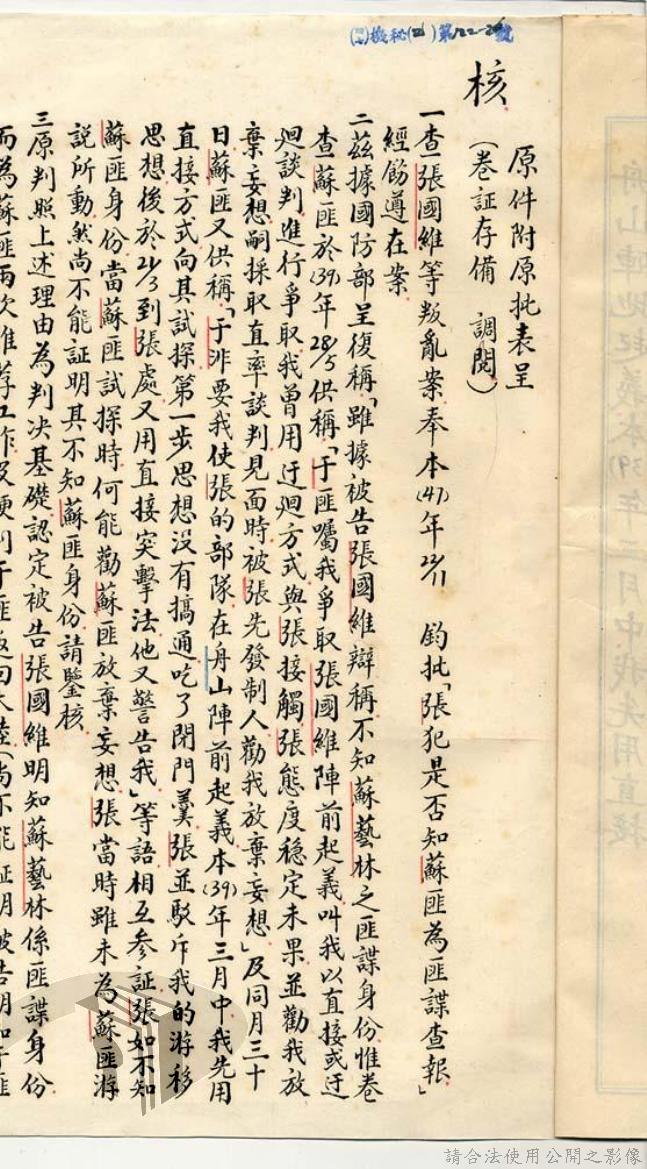 機秘(乙)第122-26號
核
原件附原批表呈
(卷証存備 調閱)
一查張國維等叛亂案奉本(41)年22/11 鈞批「張犯是否知蘇匪為匪諜查報」
經飭遵在案
二茲據國防部呈復稱「雖據被告張國維辯稱不知蘇藝林之匪諜身份惟卷
查蘇匪於(39)年28/5供稱「于匪囑我爭取張國維陣前起義叫我以直接或迂
迴談判進行爭取我曾用迂迴方式與張接觸張態度穩定未果並勸我放
棄妄想嗣採取直率談判見面時被張先發制人勸我放棄妄想」及同月三十
日蘇匪又供稱「于非要我使張的部隊在舟山陣前起義本(39)年三月中我先用
直接方式向其試探第一步思想沒有搞通吃了閉門羹張並駁斥我的游移
思想後於21/3到張處又用直接突擊法他又警告我」等語相互參証張如不知
蘇匪身份當蘇匪試探時何能勸蘇匪放棄妄想張當時雖未為蘇匪游
說所動然尚不能証明其不知蘇匪身份請鑒核
三原判照上述理由為判決基礎認定被告張國維明知蘇藝林係匪諜身份
而為蘇匪兩次推荐工作及便利于匪返回大陸(尚不能証明被告明知于匪
舟山陣地起義本(39)年三月中我先用直接
請合法使用公開之影像